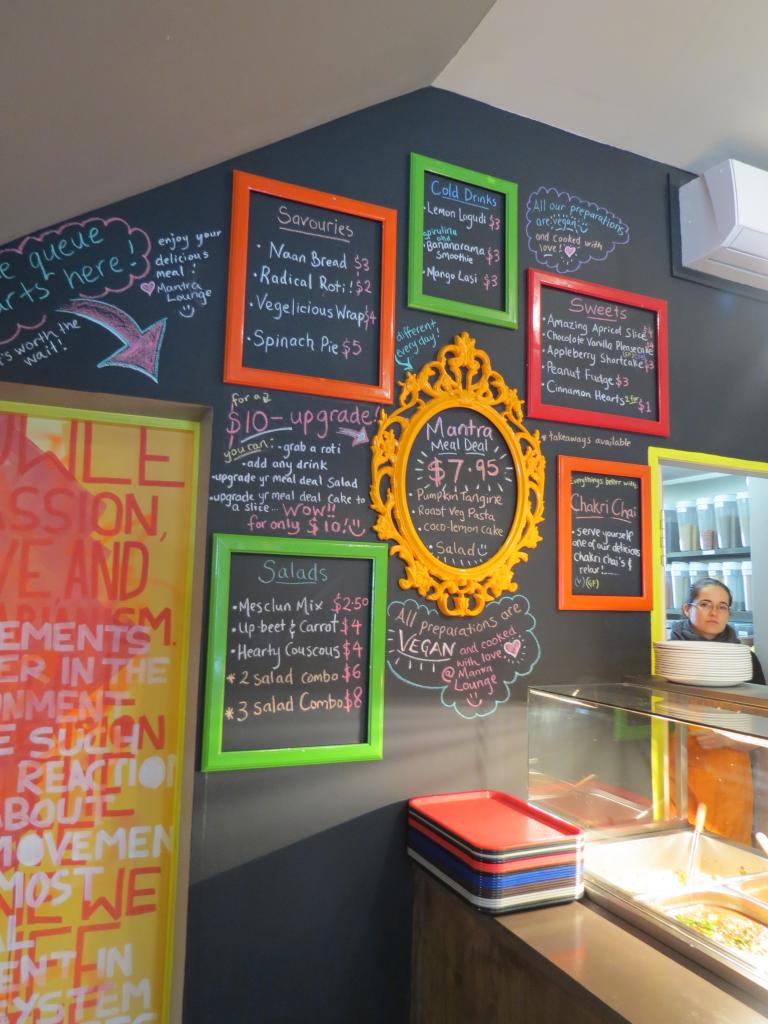 e queue
arts here!
's worth the
wait!
enjoy your
delicious
meal!
Mantra
Lounge
Savouries
• Naan Bread $3
• Radical Roti! $2
• Vegelicious Wrap $4
• Spinach Pie $5
Cold Drinks
• Lemon Lugudi $3
spirulina
and
• Bananarama $3
Smoothie
• Mango Lasi $3
All our preparations
are vegan
and cooked
with
love!
Sweets
• Amazing Apricot Slice $4
• Chocolate Vanilla Pleasecake
• Appleberry Shortcake
• Peanut Fudge $3
• Cinnamon Hearts $1
* takeaways available
different
every day!
for a
$10- upgrade!
you can: • grab a roti
• add any drink
• upgrade yr meal deal Salad
• upgrade yr meal deal cake to
a slice... WOW!!
for only $10!
Mantra
Meal Deal
$7.95
Pumpkin Tangine
• Roast Veg Pasta
• coco-lemon cake
• Salad
Everythings better with:
Chakri Chai
• serve yourself
one of our delicious
chakri chai's &
relax!
(GF)
Salads
• Mesclun Mix $2.50
• Up-beet & Carrot $4
• Hearty Couscous $4
* 2 salad combo $6
* 3 Salad Combo $8
All preparations are
VEGAN and cooked
with love
@ Mantra
Lounge
ASSION,
VE AND
SM.
EMENTS
ER IN THE
NMENT
E SUCH
REACTIO
ABOUT
MOVEMEN
MOST
WE
AL
ENT IN
SYSTEM